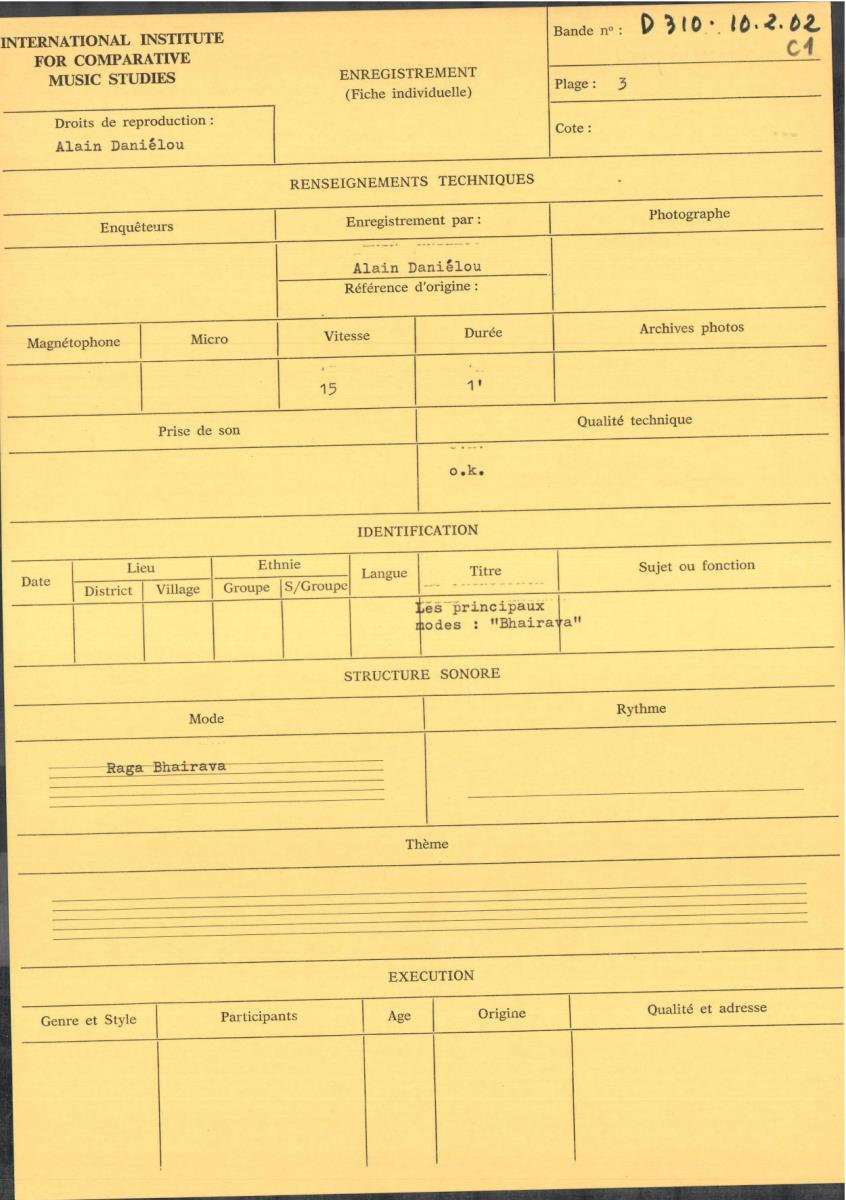 INTERNATIONAL INSTITUTE
FOR COMPARATIVE
MUSIC STUDIES
ENREGISTREMENT
(Fiche individuelle)
Bande nº : D 310. 10.2.02
C1
Plage : 3
Cote :
Droits de reproduction :
Alain Daniélou
RENSEIGNEMENTS TECHNIQUES
Enquêteurs
Enregistrement par :
Photographe
Alain Daniélou
Référence d'origine :
Magnétophone
Micro
Vitesse
Durée
Archives photos
15
1'
Prise de son
Qualité technique
o.k.
IDENTIFICATION
Date
Lieu
Ethnie
Langue
Titre
Sujet ou fonction
District
Village
Groupe
S/Groupe
Les principaux
modes : "Bhairava"
STRUCTURE SONORE
Mode
Rythme
Raga Bhairava
Thème
EXECUTION
Genre et Style
Participants
Age
Origine
Qualité et adresse